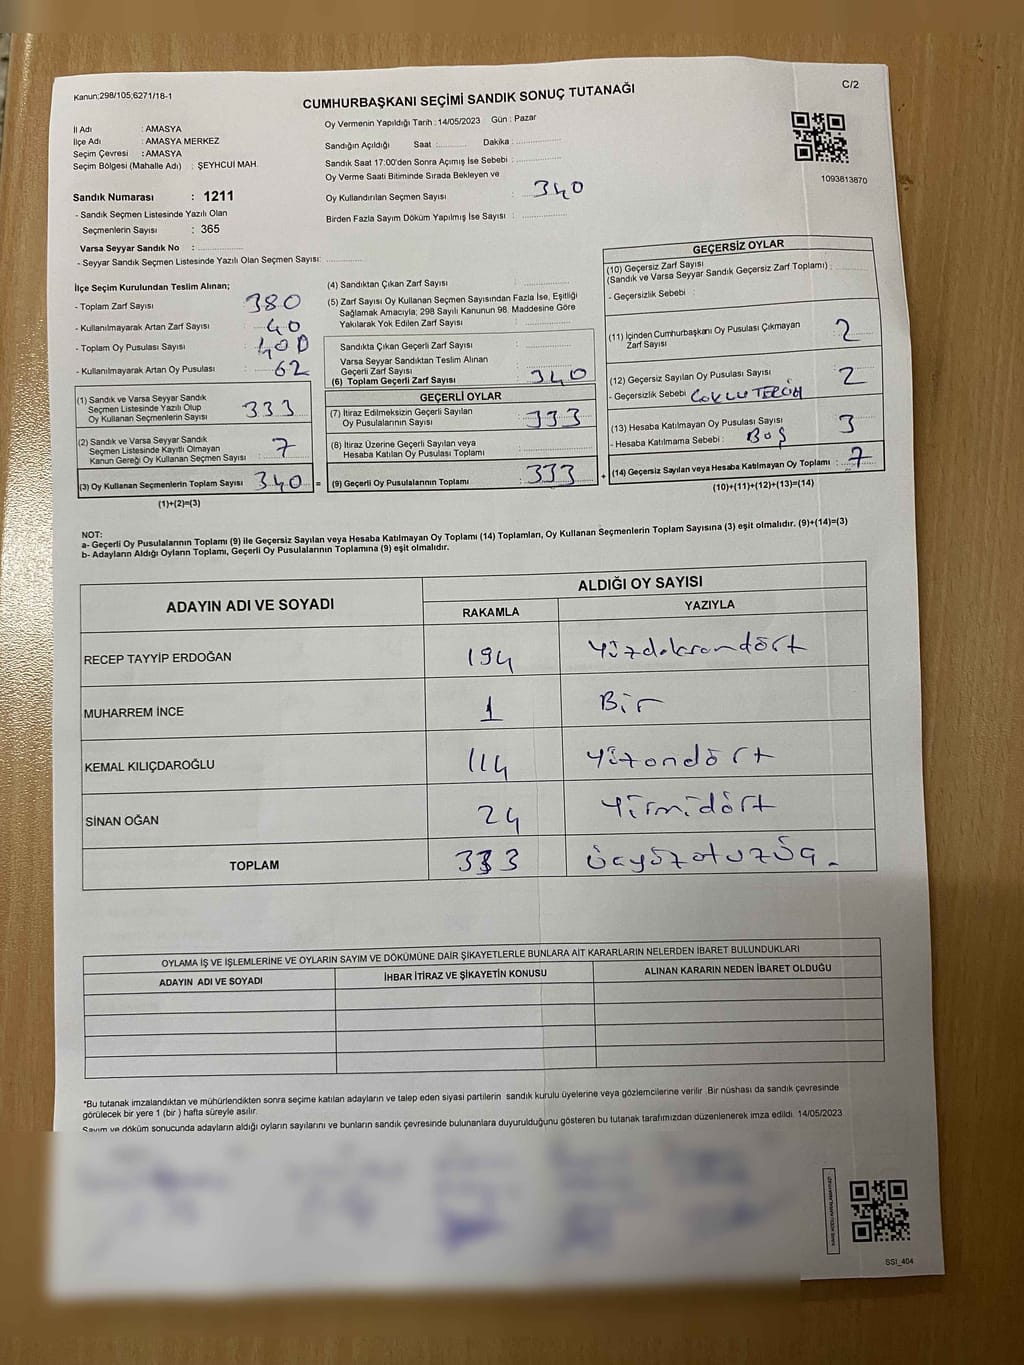 Kanun;298/105;6271/18-1
C/2
CUMHURBAŞKANI SEÇİMİ SANDIK SONUÇ TUTANAĞI
İl Adı : AMASYA
İlçe Adı : AMASYA MERKEZ
Seçim Çevresi : AMASYA
Seçim Bölgesi (Mahalle Adı) : ŞEYHCUİ MAH.
Sandık Numarası : 1211
- Sandık Seçmen Listesinde Yazılı Olan
Seçmenlerin Sayısı : 365
Varsa Seyyar Sandık No :
- Seyyar Sandık Seçmen Listesinde Yazılı Olan Seçmen Sayısı:
Oy Vermenin Yapıldığı Tarih : 14/05/2023 Gün : Pazar
Sandığın Açıldığı Saat : Dakika :
Sandık Saat 17:00'den Sonra Açımış İse Sebebi :
Oy Verme Saati Bitiminde Sırada Bekleyen ve
Oy Kullandırılan Seçmen Sayısı : 340
Birden Fazla Sayım Döküm Yapılmış İse Sayısı :
1093813870
İlçe Seçim Kurulundan Teslim Alınan;
- Toplam Zarf Sayısı : 380
- Kullanılmayarak Artan Zarf Sayısı : 40
- Toplam Oy Pusulası Sayısı : 400
- Kullanılmayarak Artan Oy Pusulası : 62
(1) Sandık ve Varsa Seyyar Sandık
Seçmen Listesinde Yazılı Olup
Oy Kullanan Seçmenlerin Sayısı : 333
(2) Sandık ve Varsa Seyyar Sandık
Seçmen Listesinde Kayıtlı Olmayan
Kanun Gereği Oy Kullanan Seçmen Sayısı : 7
(3) Oy Kullanan Seçmenlerin Toplam Sayısı : 340 =
(1)+(2)=(3)
(4) Sandıktan Çıkan Zarf Sayısı :
(5) Zarf Sayısı Oy Kullanan Seçmen Sayısından Fazla İse, Eşitliği
Sağlamak Amacıyla; 298 Sayılı Kanunun 98. Maddesine Göre
Yakılarak Yok Edilen Zarf Sayısı :
Sandıkta Çıkan Geçerli Zarf Sayısı :
Varsa Seyyar Sandıktan Teslim Alınan
Geçerli Zarf Sayısı :
(6) Toplam Geçerli Zarf Sayısı : 340
GEÇERLİ OYLAR
(7) İtiraz Edilmeksizin Geçerli Sayılan
Oy Pusulalarının Sayısı : 333
(8) İtiraz Üzerine Geçerli Sayılan veya
Hesaba Katılan Oy Pusulası Toplamı :
(9) Geçerli Oy Pusulalarının Toplamı : 333 +
GEÇERSİZ OYLAR
(10) Geçersiz Zarf Sayısı
(Sandık ve Varsa Seyyar Sandık Geçersiz Zarf Toplamı) :
- Geçersizlik Sebebi :
(11) İçinden Cumhurbaşkanı Oy Pusulası Çıkmayan
Zarf Sayısı : 2
(12) Geçersiz Sayılan Oy Pusulası Sayısı : 2
- Geçersizlik Sebebi : ÇOKLU TERCİH
(13) Hesaba Katılmayan Oy Pusulası Sayısı : 3
- Hesaba Katılmama Sebebi : BOŞ
(14) Geçersiz Sayılan veya Hesaba Katılmayan Oy Toplamı : 7
(10)+(11)+(12)+(13)=(14)
NOT:
a- Geçerli Oy Pusulalarının Toplamı (9) ile Geçersiz Sayılan veya Hesaba Katılmayan Oy Toplamı (14) Toplamları, Oy Kullanan Seçmenlerin Toplam Sayısına (3) eşit olmalıdır. (9)+(14)=(3)
b- Adayların Aldığı Oyların Toplamı, Geçerli Oy Pusulalarının Toplamına (9) eşit olmalıdır.
ADAYIN ADI VE SOYADI
ALDIĞI OY SAYISI
RAKAMLA YAZIYLA
RECEP TAYYİP ERDOĞAN 194 Yüzdoksandört
MUHARREM İNCE 1 Bir
KEMAL KILIÇDAROĞLU 114 Yüzondört
SİNAN OĞAN 24 Yirmidört
TOPLAM 333 Üçyüzotuzüç.
OYLAMA İŞ VE İŞLEMLERİNE VE OYLARIN SAYIM VE DÖKÜMÜNE DAİR ŞİKAYETLERLE BUNLARA AİT KARARLARIN NELERDEN İBARET BULUNDUKLARI
ADAYIN ADI VE SOYADI İHBAR İTİRAZ VE ŞİKAYETİN KONUSU ALINAN KARARIN NEDEN İBARET OLDUĞU
*Bu tutanak imzalandıktan ve mühürlendikten sonra seçime katılan adayların ve talep eden siyasi partilerin sandık kurulu üyelerine veya gözlemcilerine verilir. Bir nüshası da sandık çevresinde
görülecek bir yere 1 (bir) hafta süreyle asılır.
Sayım ve döküm sonucunda adayların aldığı oyların sayılarını ve bunların sandık çevresinde bulunanlara duyurulduğunu gösteren bu tutanak tarafımızdan düzenlenerek imza edildi. 14/05/2023
KARE KODU KARALAMAYINIZ!
SSI_404